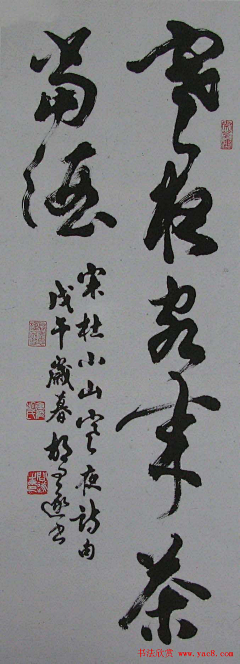 寒夜客来茶
当酒
宋杜小山寒夜诗句
戊午岁暮胡问遂书
书法欣赏
www.yac8.com